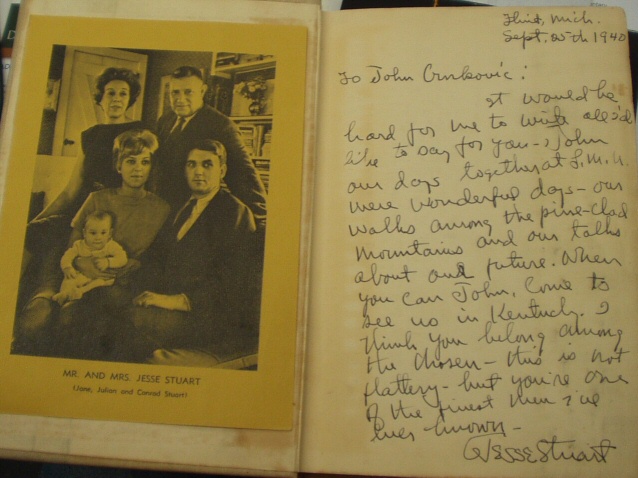 MR. AND MRS. JESSE STUART
(Jane, Julian and Conrad Stuart)
Flint, Mich.
Sept. 25th 1940
To John Crnkovic:
It would be
hard for me to write all I'd
like to say for you - John
our days together at L.M.U.
were wonderful days - our
walks among the pine-clad
mountains and our talks
about our future. When
you can John, come to
see us in Kentucky. I
think you belong among
the chosen - this is not
flattery - but you're one
of the finest men I've
ever known -
Jesse Stuart